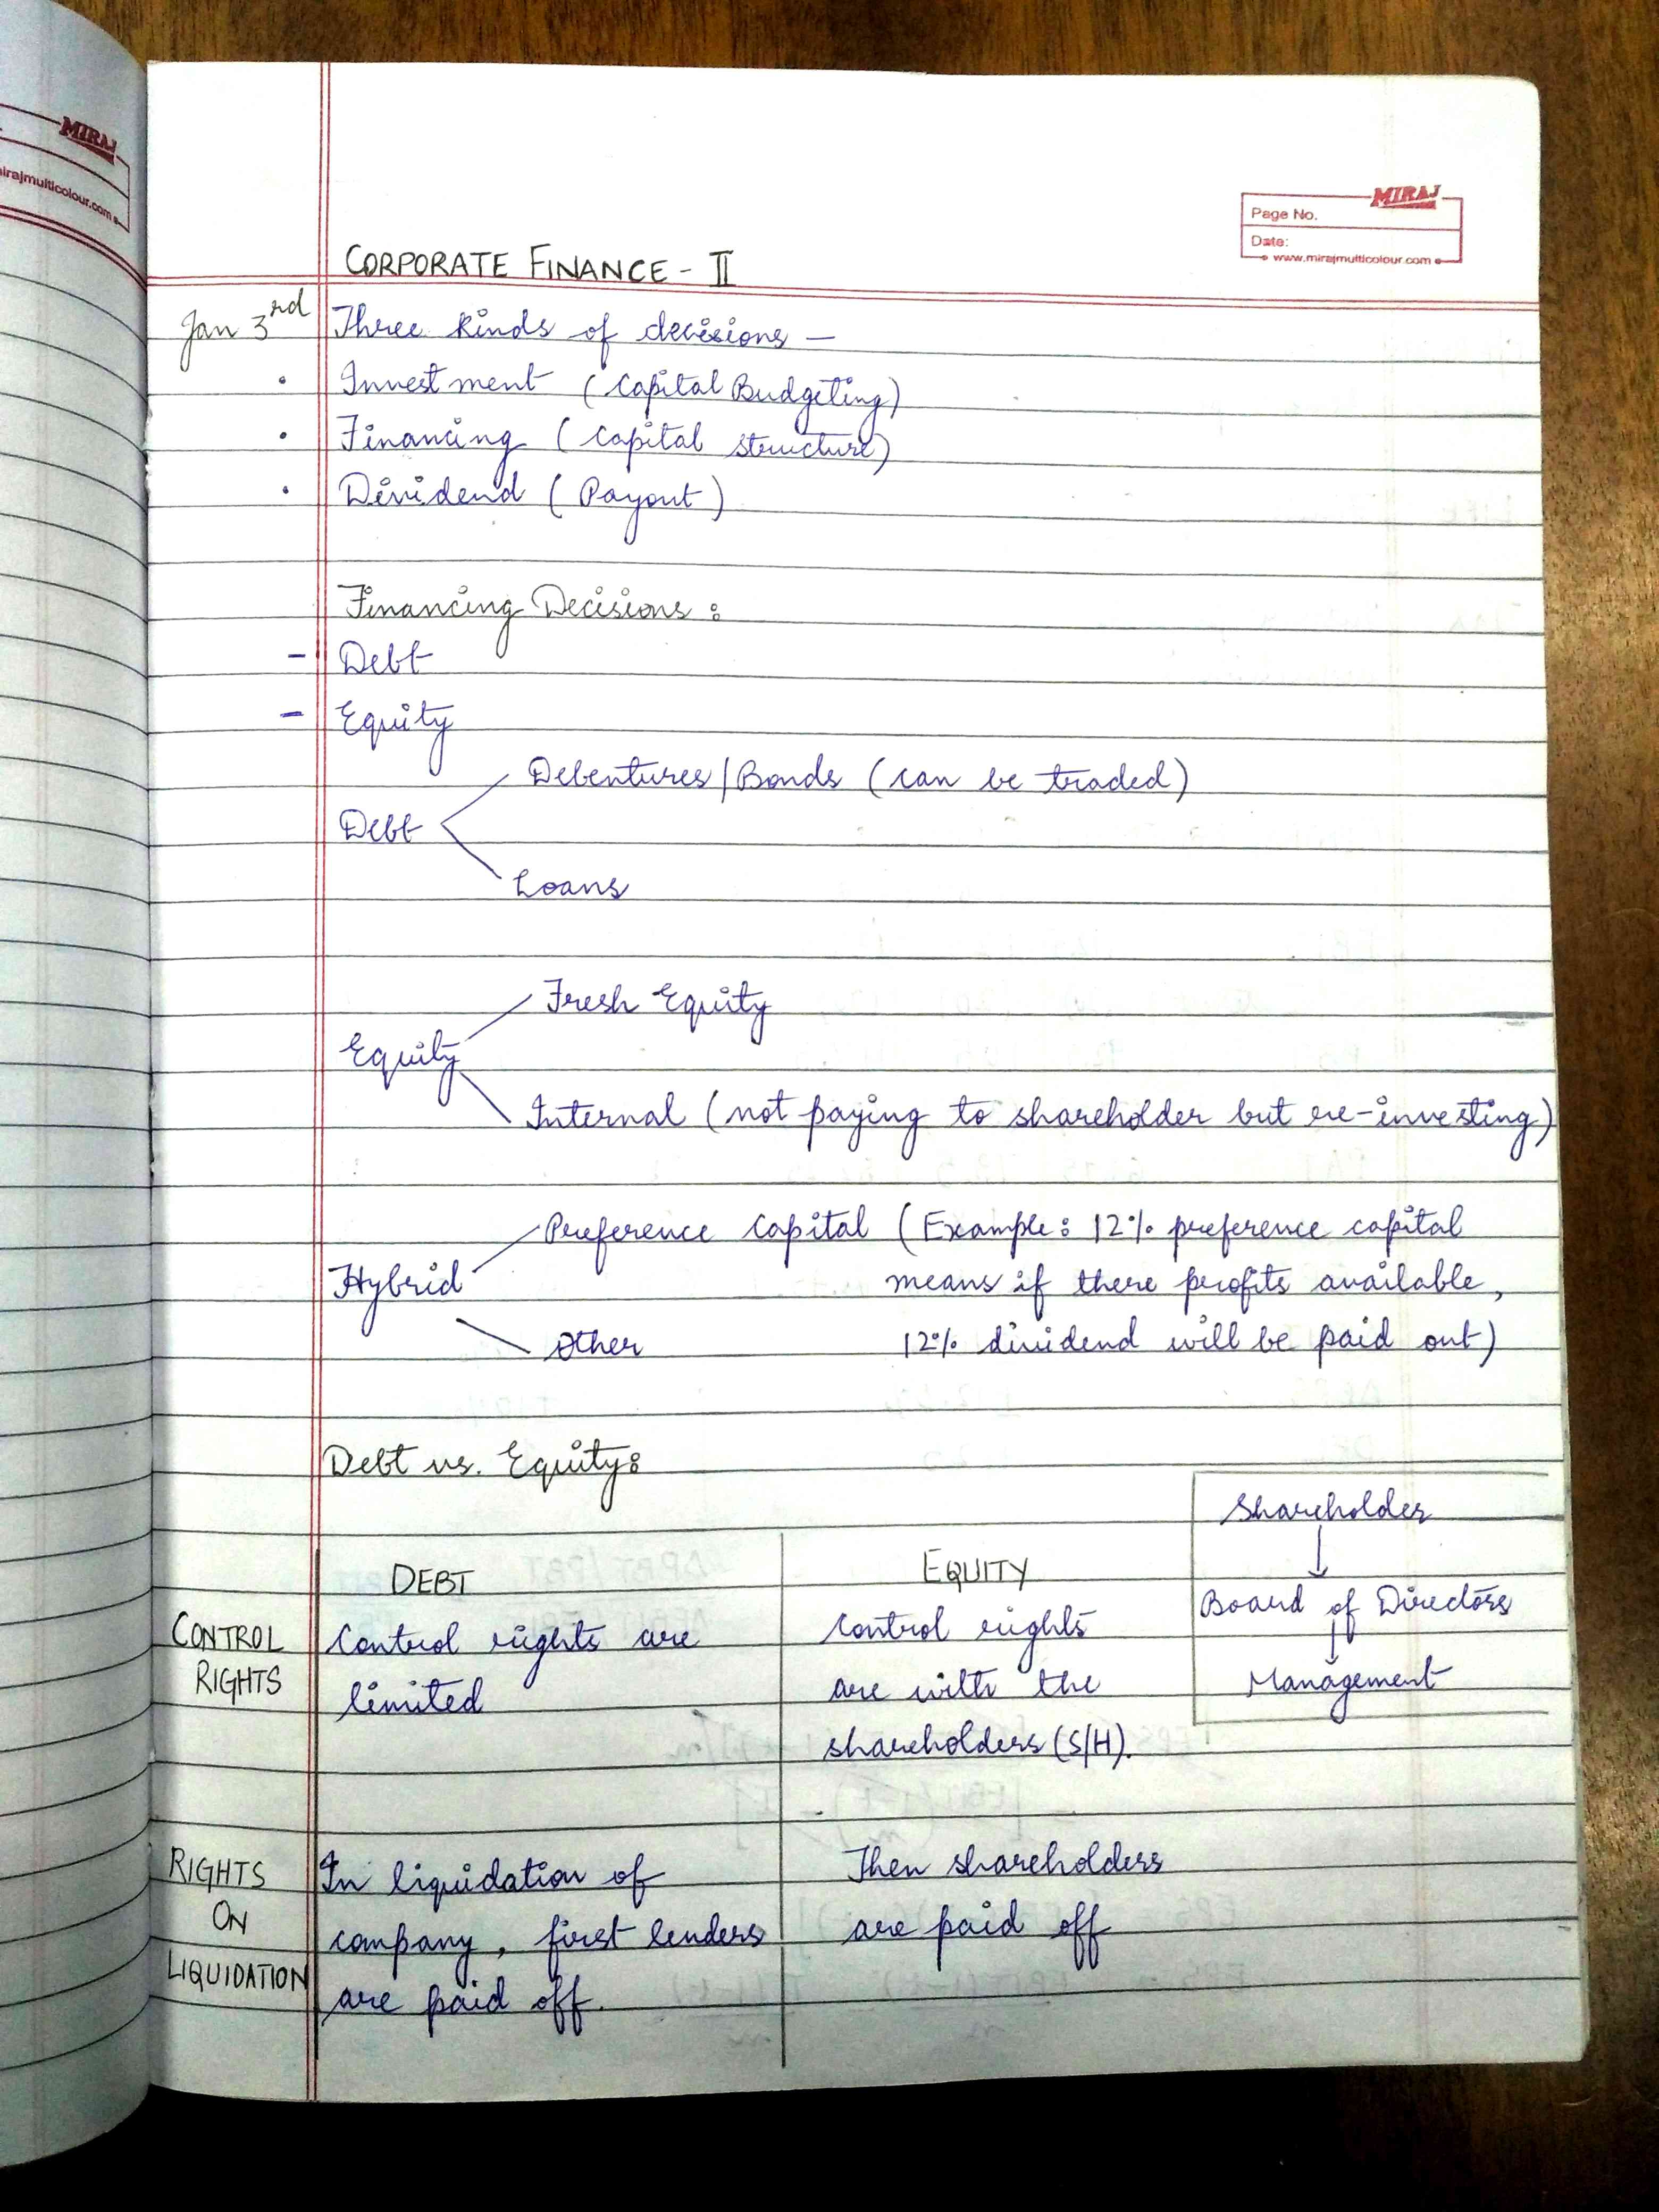 MIRAJ
irajmulticolour.com
MIRAJ
Page No.
Date:
www.mirajmulticolour.com
CORPORATE FINANCE - II
Jan 3rd Three kinds of decisions —
• Investment (Capital Budgeting)
• Financing (Capital structure)
• Dividend (Payout)
Financing Decisions :
- Debt
- Equity
Debentures/Bonds (can be traded)
Debt
Loans
Fresh Equity
Equity
Internal (not paying to shareholder but re-investing)
Preference Capital (Example: 12% preference capital
Hybrid means if there profits available,
Other 12% dividend will be paid out)
Debt vs. Equity:
Shareholder
↓
Board of Directors
↓
Management
DEBT EQUITY
CONTROL RIGHTS
Control rights are
limited
Control rights
are with the
shareholders (S/H).
RIGHTS
ON
LIQUIDATION
In liquidation of
company, first lenders
are paid off.
Then shareholders
are paid off